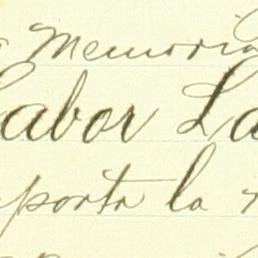 Memoria
Labor La
porta la